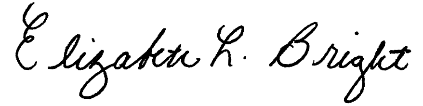 Elizabeth L. Bright